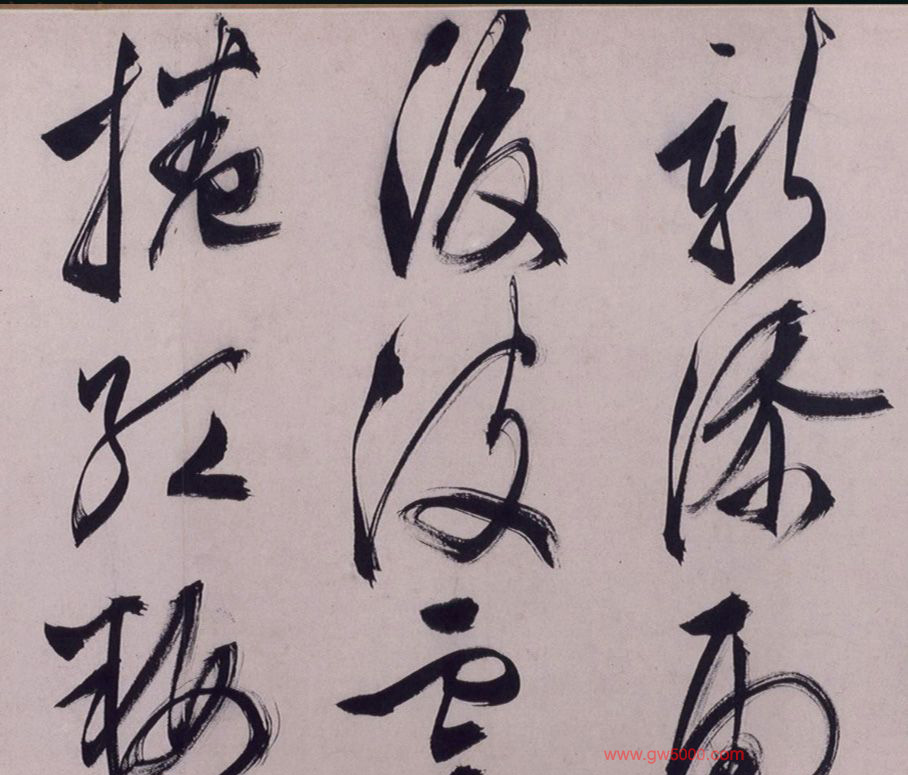 新添雨
後波雲
捲紅梅
www.gw5000.com